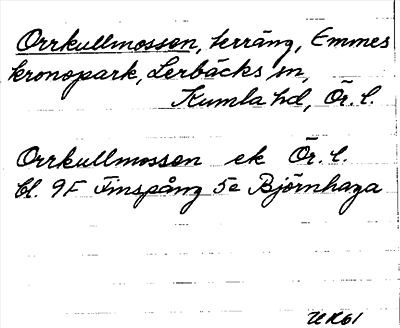 Orrkullmossen, terräng, Emmes
kronopark, Lerbäcks sn,
Kumla hd, Ör. l.
Orrkullmossen ek Ör. l.
bl. 9F Finspång 5e Björnhaga
UR61